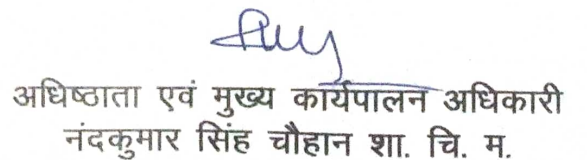 अधिष्ठाता एवं मुख्य कार्यपालन अधिकारी
नंदकुमार सिंह चौहान शा. चि. म.